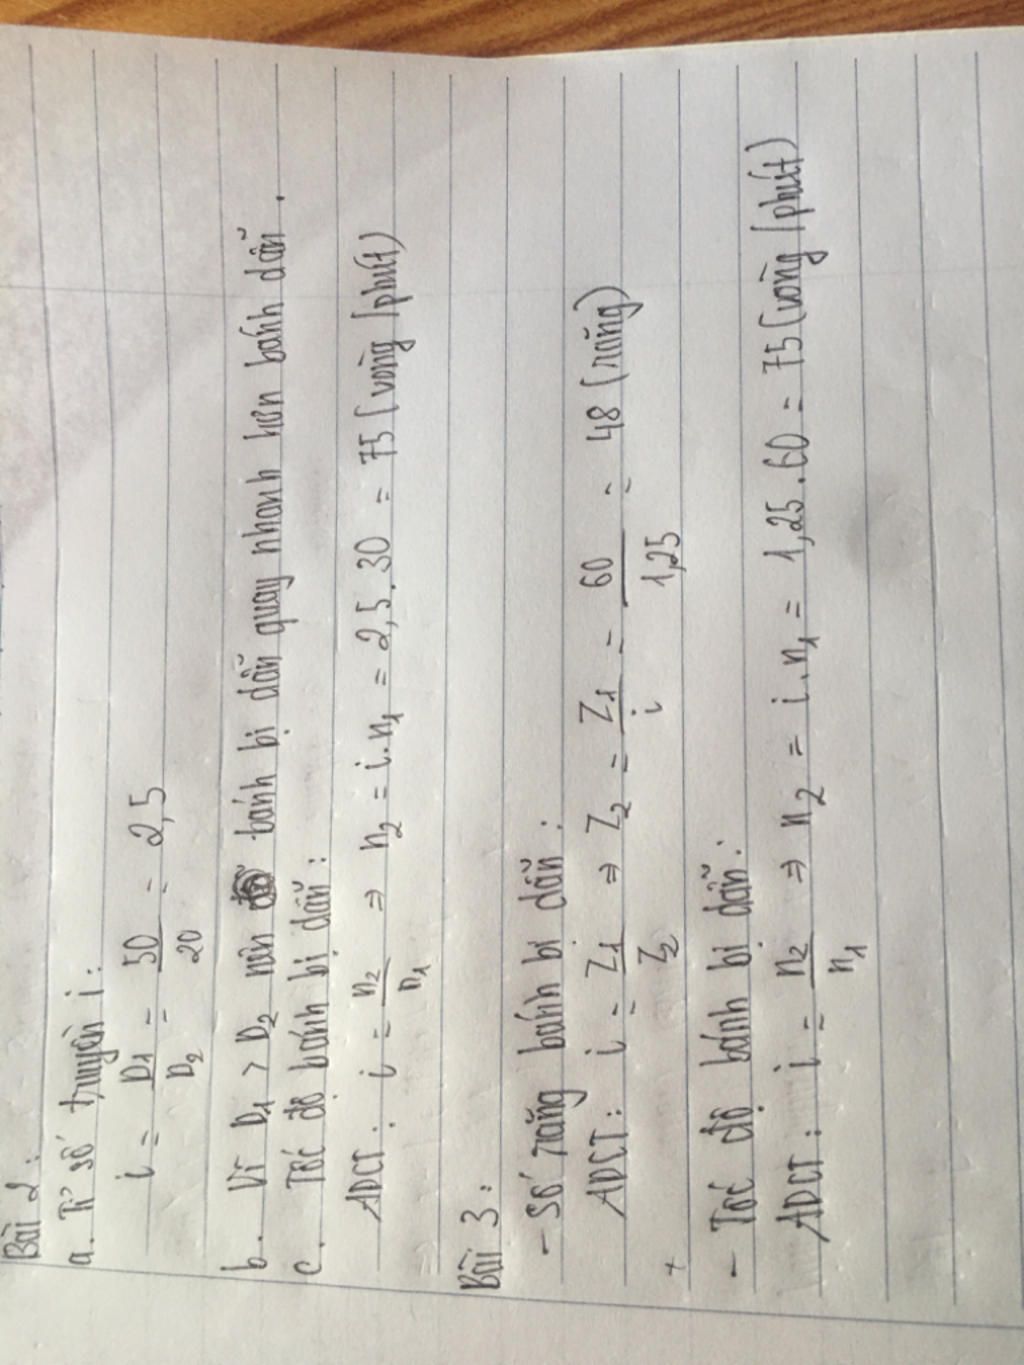 Bài 2:
a. Tỉ số truyền i:
i = D1/D2 = 50/20 = 2,5
b. Vì D1 > D2 nên bánh bị dẫn quay nhanh hơn bánh dẫn.
c. Tốc độ bánh bị dẫn:
ADCT: i = n2/n1 ⇒ n2 = i.n1 = 2,5.30 = 75 (vòng/phút)
Bài 3:
- Số răng bánh bị dẫn:
ADCT: i = Z1/Z2 ⇒ Z2 = Z1/i = 60/1,25 = 48 (răng)
+
- Tốc độ bánh bị dẫn:
ADCT: i = n2/n1 ⇒ n2 = i.n1 = 1,25.60 = 75 (vòng/phút)